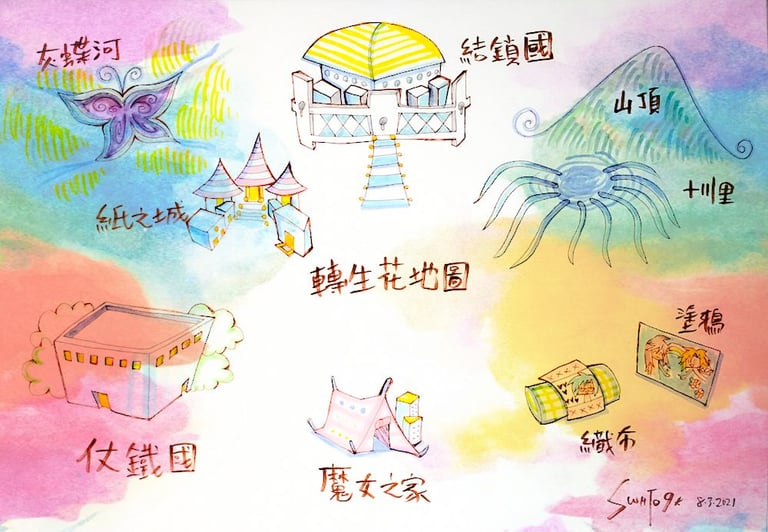 灰蝶河
結鎖國
山頂
十川里
紙之城
轉生花地圖
塗鴉
仗鐵國
織布
魔女之家
8.3.2021